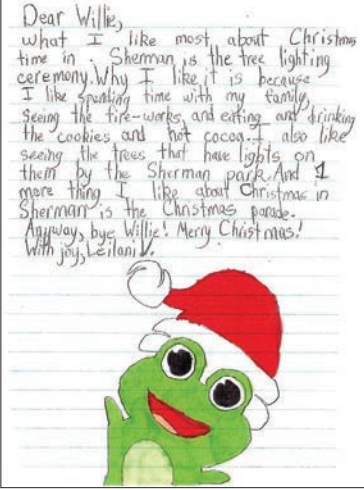 Dear Willie,
what I like most about Christmas
time in . Sherman is the tree lighting
ceremony. Why I like it is because
I like spending time with my family,
seeing the fire-works, and eating and drinking
the cookies and hot cocoa. I also like
seeing the trees that have lights on
them by the Sherman park. And 1
more thing I like about Christmas in
Sherman is the Christmas parade.
Anyway, bye Willie! Merry Christmas!
With joy, Leilani V.